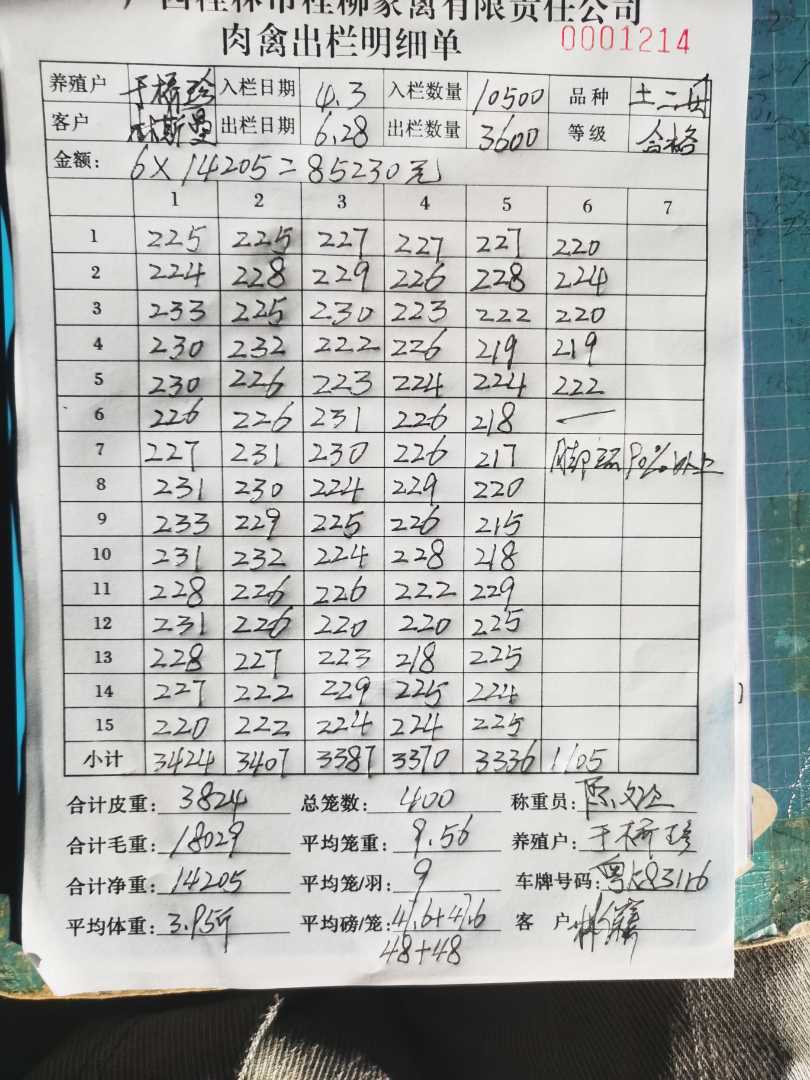 广西桂林市桂柳家禽有限责任公司
肉禽出栏明细单 0001214
养殖户 于桥珍 入栏日期 4.3 入栏数量 10500 品种 土二
客户 出栏日期 6.28 出栏数量 3600 等级 合格
金额: 6×14205=85230元
1 2 3 4 5 6 7
1 225 225 227 227 227 220
2 224 228 229 226 228 224
3 233 225 230 223 222 220
4 230 232 222 226 219 219
5 230 226 223 224 224 222
6 226 226 231 226 218 —
7 227 231 230 226 217 90%以上
8 231 230 224 229 220
9 233 229 225 226 215
10 231 232 224 228 218
11 228 226 226 222 229
12 231 226 220 220 225
13 228 227 223 218 225
14 227 222 229 225 224
15 220 222 224 224 225
小计 3424 3407 3387 3370 3336 1105
合计皮重: 3824 总笼数: 400 称重员:
合计毛重: 18029 平均笼重: 9.56 养殖户: 于桥珍
合计净重: 14205 平均笼/羽: 9 车牌号码:
平均体重: 3.95斤 平均磅/笼: 47.6+47.6 客 户
48+48